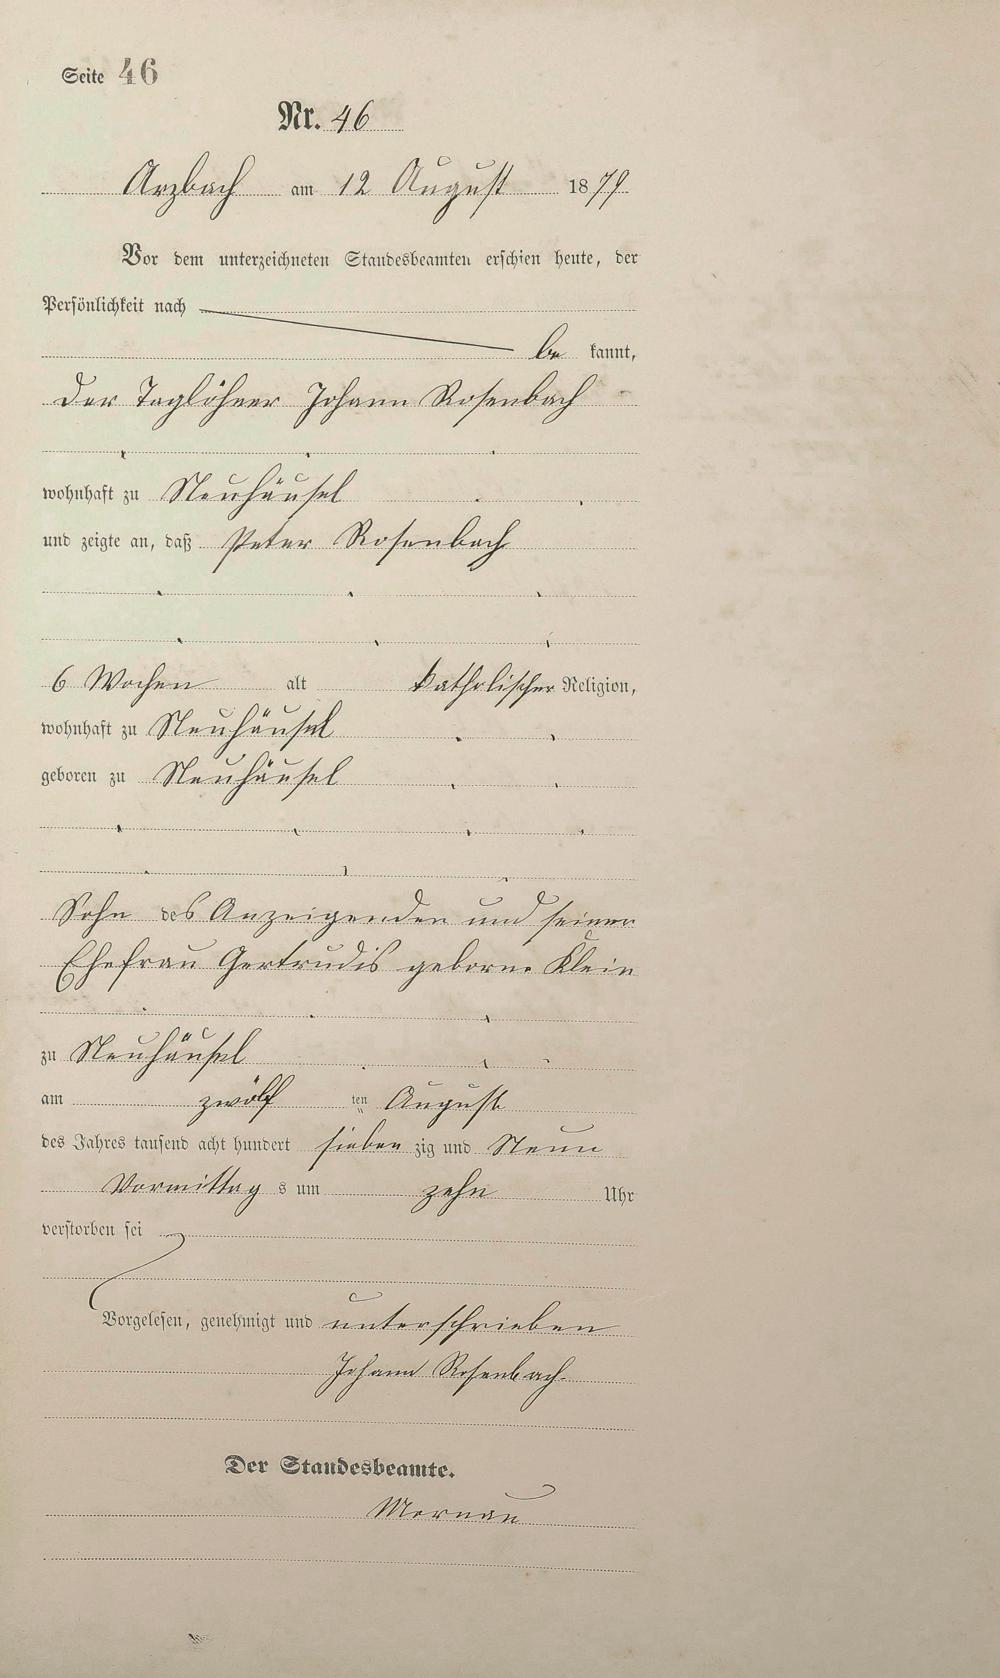 Seite 46
Nr. 46
Arzbach am 12 August 1879
Vor dem unterzeichneten Standesbeamten erschien heute, der
Persönlichkeit nach
be kannt,
der Taglöhner Johann Rosenbach
wohnhaft zu Neuhäusel
und zeigte an, daß Peter Rosenbach
6 Wochen alt katholischer Religion,
wohnhaft zu Neuhäusel
geboren zu Neuhäusel
Sohn des Anzeigenden und seiner
Ehefrau Gertrudis geborne Klein
zu Neuhäusel
am zwölf ten August
des Jahres tausend acht hundert sieben zig und Neun
Vormittag s um zehn Uhr
verstorben sei
Vorgelesen, genehmigt und unterschrieben
Johann Rosenbach
Der Standesbeamte.